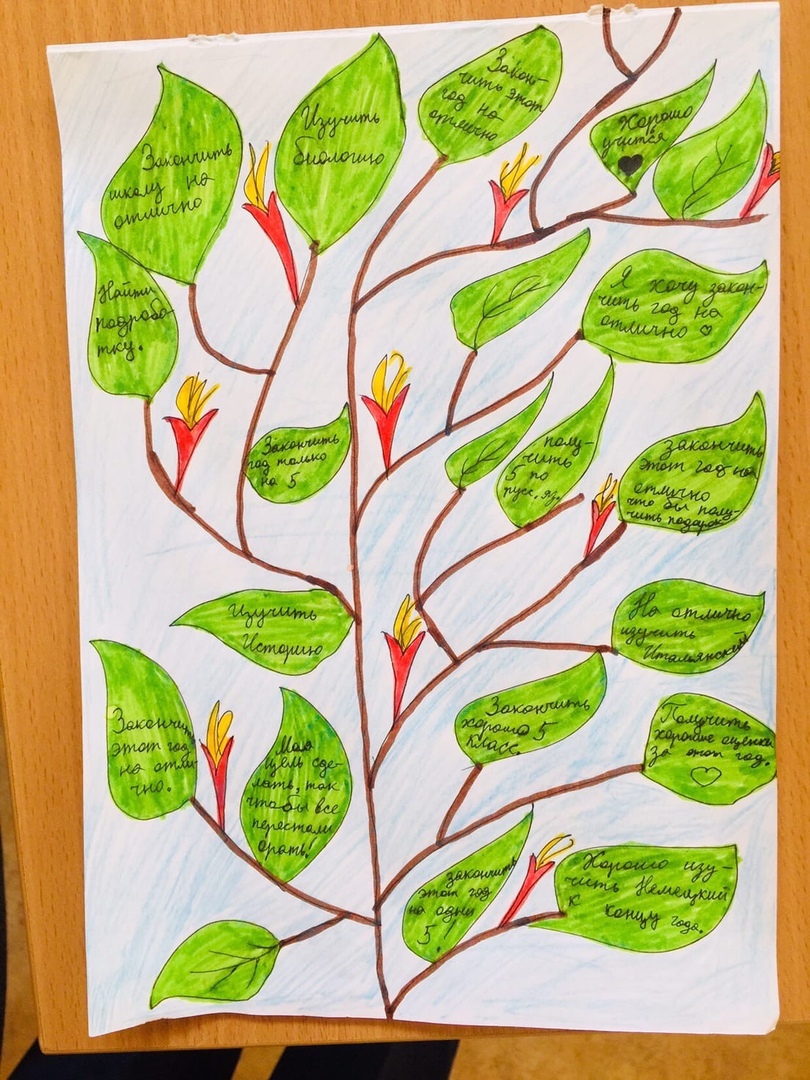 Закончить
школу на
отлично
Изучить
биологию
Закон-
чить этот
год на
отлично
Хорошо
учится
Найти
подрабо-
тку.
Я хочу закон-
чить год на
отлично
Закончить
год только
на 5
полу-
чить
5 по
русс. яз.
закончить
этот год на
отлично
что бы полу-
чить подарок
Изучить
Историю
На отлично
изучить
Итальянский
Закончить
этот год
на отли-
чно.
Моя
цель сде-
лать, так
чтобы все
перестали
орать!
Закончить
хорошо 5
класс.
Получить
хорошие оценки
за этот год.
закончить
этот год
на одни
5!
Хорошо изу-
чить Немецкий
к концу года.